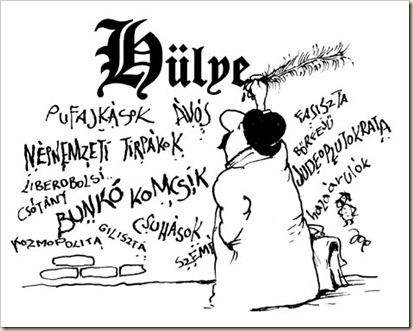 Hülye
PUFAJKÁSOK
ÁVÓS
NÉPNEMZETI TIRPÁKOK
LIBEROBOLSI
CSÓTÁNY
BUNKÓ KOMCSIK
CSUHÁSOK
GILISZTA
KOZMOPOLITA
SZEMÉ
FASISZTA
BŐRFEJŰ
JUDEOPLUTOKRATA
hazaárulók